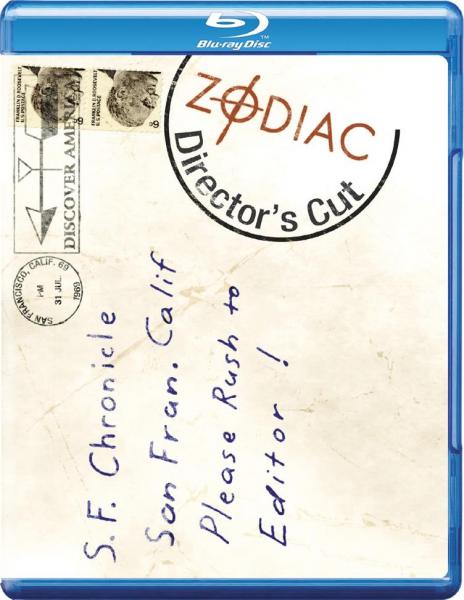 Blu-ray Disc™
FRANKLIN D. ROOSEVELT
U.S. POSTAGE
6¢
FRANKLIN D. ROOSEVELT
U.S. POSTAGE
6¢
ZODIAC
Director's Cut
DISCOVER AMERICA
SAN FRANCISCO, CALIF. 69
PM
31 JUL
1969
S.F. Chronicle
San Fran. Calif
Please Rush to
Editor!